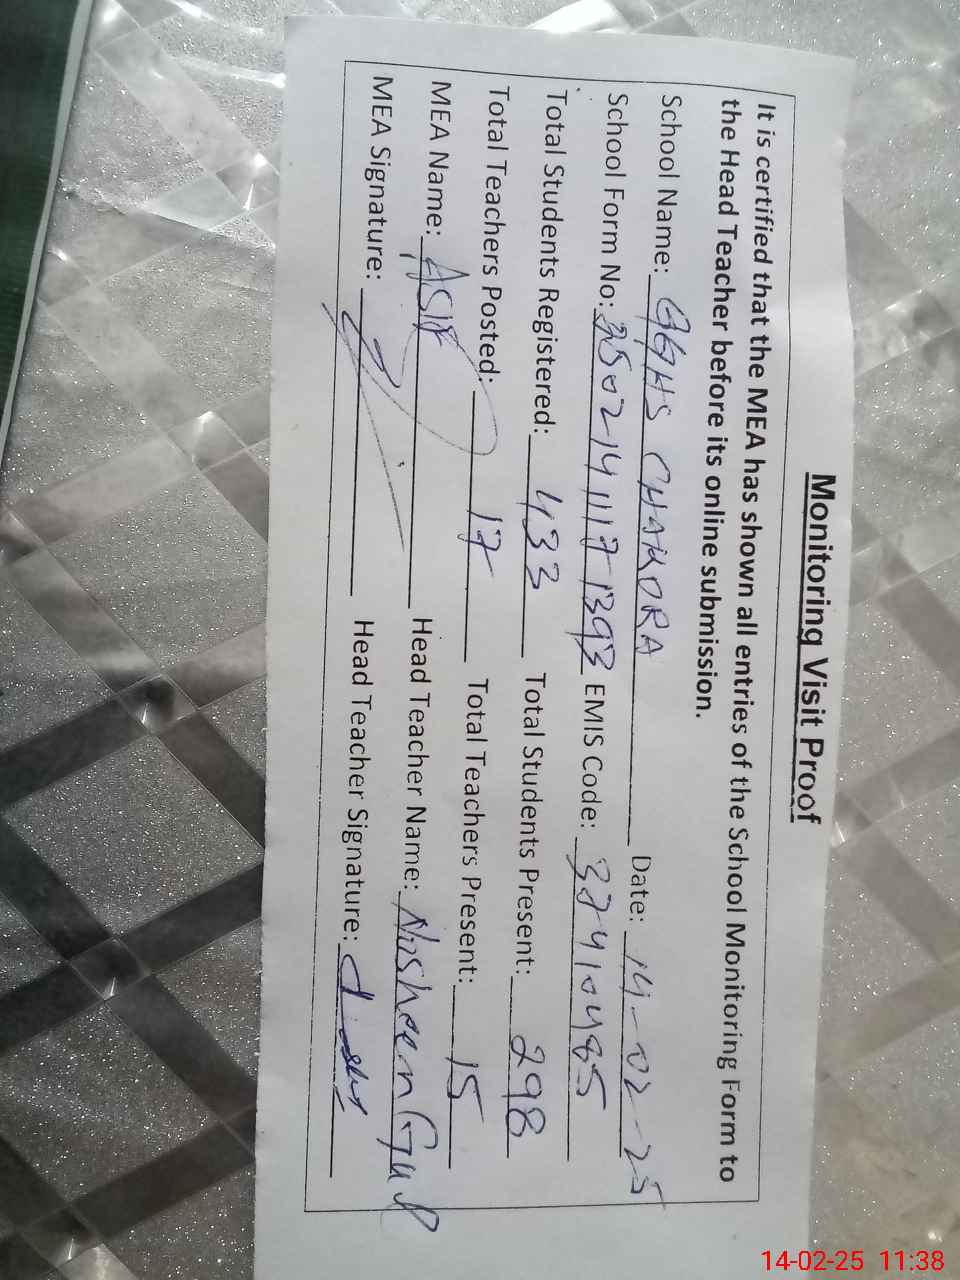 Monitoring Visit Proof
It is certified that the MEA has shown all entries of the School Monitoring Form to
the Head Teacher before its online submission.
School Name: GGHS CHAKORA Date: 14-02-25
School Form No: 35021411171393 EMIS Code: 37410485
Total Students Registered: 433 Total Students Present: 298
Total Teachers Posted: 17 Total Teachers Present: 15
MEA Name: ASIF Head Teacher Name: Nosheen Gul
MEA Signature: Head Teacher Signature:
14-02-25 11:38